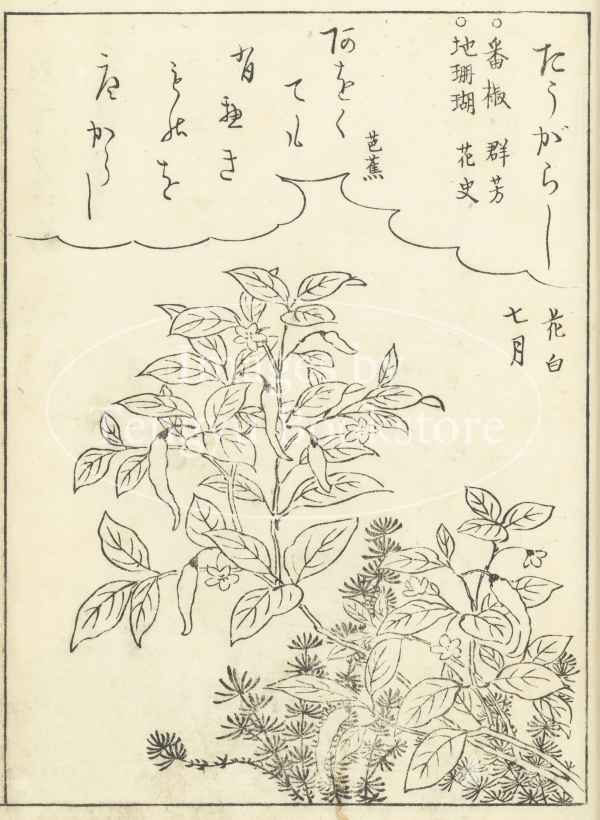 たうがらし
○番椒 群芳
○地珊瑚 花史
芭蕉
阿をく
ても
有べき
ものを
唐からし
花白
七月
Images by
Tengyu Bookstore